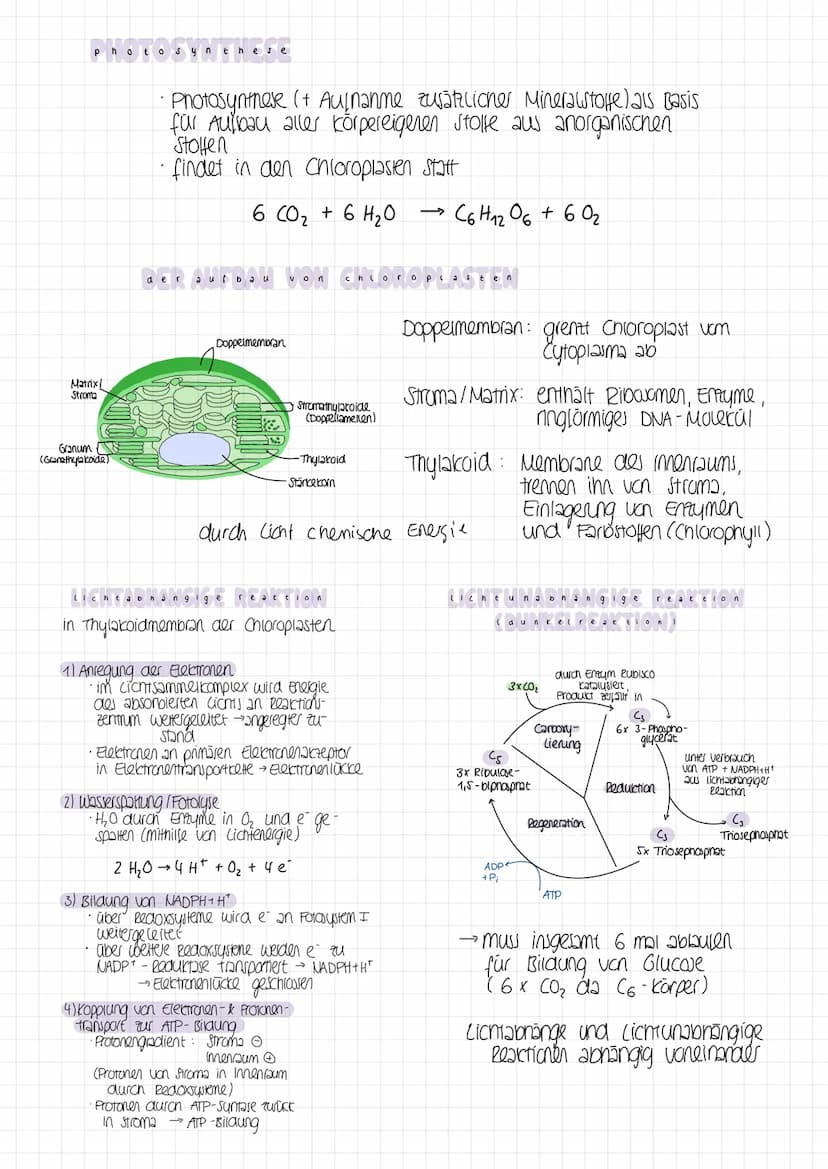 PHOTOSYNTHESE
· Photosynthese (+ Aufnahme zusätzlicher Mineralstoffe) als Basis
für Aufbau aller körpereigenen Stoffe aus anorganischen
Stoffen
· findet in den Chloroplasten statt
6 CO₂ + 6 H₂O → C₆H₁₂O₆ + 6 O₂
DER AUFBAU VON CHLOROPLASTEN
Doppelmembran
Matrix/
Stroma
Stromathylakoide
(Doppellamellen)
Granum
(Granathylakoide)
Thylakoid
Stärkekorn
Doppelmembran: grenzt Chloroplast vom
Cytoplasma ab
Stroma/Matrix: enthält Ribosomen, Enzyme,
ringförmiges DNA-Molekül
Thylakoid: Membrane des Innenraums,
trennen ihn von Stroma,
Einlagerung von Enzymen
und Farbstoffen (Chlorophyll)
durch Licht chemische Energie
LICHTABHÄNGIGE REAKTION
in Thylakoidmembran der Chloroplasten
1) Anregung der Elektronen
· im Lichtsammelkomplex wird Energie
des absorbierten Lichts an Reaktions-
zentrum weitergeleitet → angeregter Zu-
stand
· Elektronen an primären Elektronenakzeptor
in Elektronentransportkette → Elektronenlücke
2) Wasserspaltung/Fotolyse
· H₂O durch Enzyme in O₂ und e⁻ ge-
spalten (mithilfe von Lichtenergie)
2 H₂O → 4 H⁺ + O₂ + 4 e⁻
3) Bildung von NADPH+H⁺
· über Redoxsysteme wird e⁻ an Fotosystem I
weitergeleitet
· über weitere Redoxsysteme werden e⁻ zu
NADP⁺-Reduktase transportiert → NADPH+H⁺
→ Elektronenlücke geschlossen
4) Kopplung von Elektronen- & Protonen-
transport zur ATP-Bildung
· Protonengradient: Stroma ⊖
Innenraum ⊕
(Protonen von Stroma in Innenraum
durch Redoxsysteme)
· Protonen durch ATP-Syntase zurück
in Stroma → ATP-Bildung
LICHTUNABHÄNGIGE REAKTION
(DUNKELREAKTION)
durch Enzym Rubisco
katalysiert,
Produkt zerfällt in
3xCO₂
C₃
6x 3-Phospho-
glycerat
Carboxy-
lierung
C₅
3x Ribulose-
1,5-biphosphat
unter Verbrauch
von ATP + NADPH+H⁺
aus lichtabhängiger
Reaktion
Reduktion
Regeneration
C₃
Triosephosphat
C₃
5x Triosephosphat
ADP
+Pᵢ
ATP
→ muss insgesamt 6 mal ablaufen
für Bildung von Glucose
(6 x CO₂ da C₆-Körper)
Lichtabhänge und Lichtunabhängige
Reaktionen abhängig voneinander